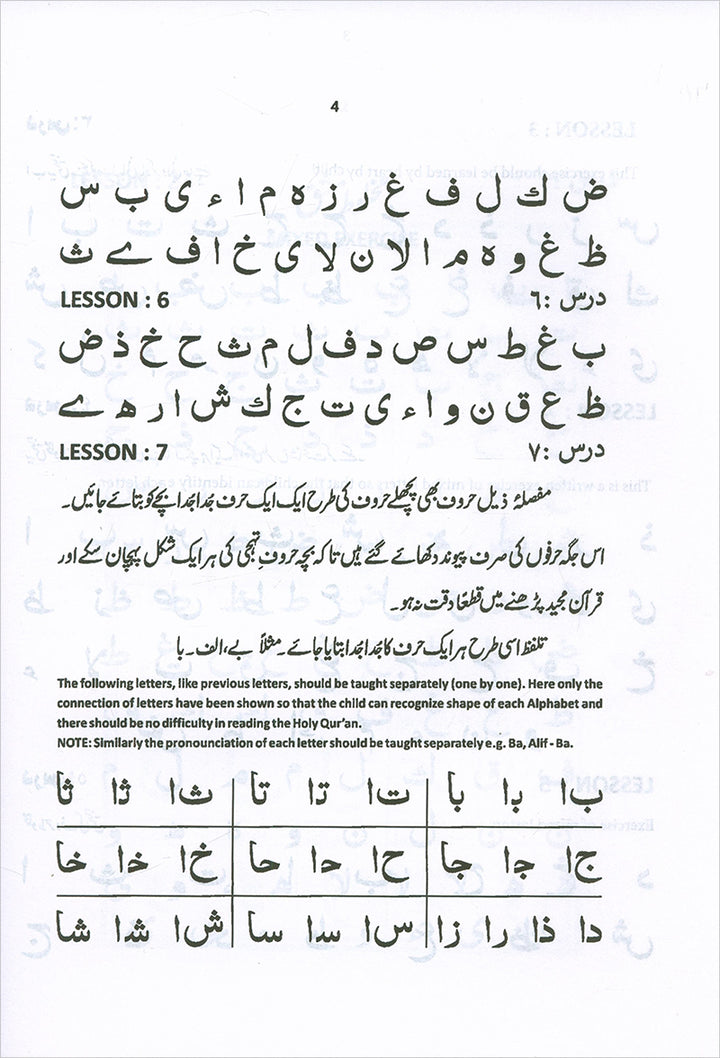 4
ض ك ل ف غ ر ز ه م ا ء ی ب س
ظ غ و ه م ا لا ن لا ی خ ا ف ے ث
LESSON : 6 درس :٦
ب غ ط س ص د ف ل م ث ح خ ذ ض
ظ ع ق ن و ا ء ی ت ج ك ش ا ر ھ ے
LESSON : 7 درس :۷
مفصلۂ ذیل حروف بھی پچھلے حروف کی طرح ایک ایک حرف جُدا جُدا بچے کو بتائے جائیں۔
اس جگہ حرفوں کی صرف پیوند دکھائے گئے ہیں تاکہ بچہ حروفِ تہجی کی ہر ایک شکل پہچان سکے اور
قرآن مجید پڑھنے میں قطعًا دقت نہ ہو۔
تلفظ اسی طرح ہر ایک حرف کا جُدا جُدا بتایا جائے۔ مثلاً بے، الف۔ با
The following letters, like previous letters, should be taught separately (one by one). Here only the
connection of letters have been shown so that the child can recognize shape of each Alphabet and
there should be no difficulty in reading the Holy Qur'an.
NOTE: Similarly the pronounciation of each letter should be taught separately e.g. Ba, Alif - Ba.
ب ا با با ت ا تا تا ث ا ثا ثا
ج ا جا جا ح ا حا حا خ ا خا خا
دا ذا را زا س ا سا سا ش ا شا شا